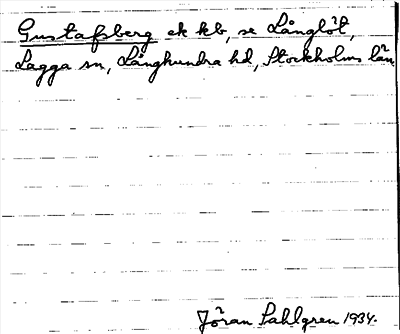 Gustafsberg ek kb, se Långlöt,
Lagga sn, Långhundra hd, Stockholms län.
Jöran Sahlgren 1934.